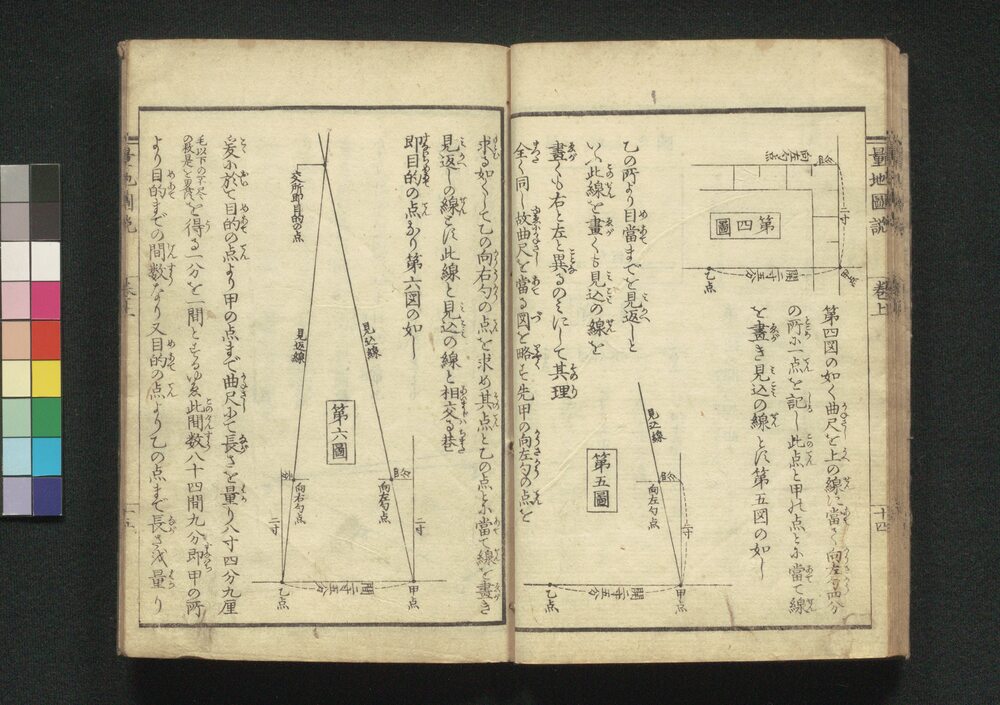 量地圖説
巻上
十四
第四圖
向左勾点
四分
二寸
甲点
開二寸五分
乙点
第四図の如く曲尺を上の線に當て向左勾四分
の所に一点を記し此点と甲の点とに當て線
を畫き見込の線とす第五図の如し
第五圖
見込線
四分
向左勾点
二寸
甲点
開二寸五分
乙点
乙の所より目當までを見返しと
いふ此線を畫くも見込の線を
畫くも右と左と異るのみにして其理
全く同し故曲尺を當る図を略す先甲の向左勾の点を
求る如くして乙の向右勾の点を求め其点と乙の点とに當て線を畫き
見返しの線とす此線と見込の線と相交る巷
即目的の点なり第六図の如し
第六圖
交所即目的の点
見込線
見返線
向左勾点
向右勾点
二寸
二寸
甲点
開二寸五分
乙点
爰に於て目的の点より甲の点まで曲尺にて長さを量り八寸四分九厘
毛以下の不尽
を得る一分を一間とするゆゑ此間数八十四間九分即甲の所
より目的までの間数なり又目的の点より乙の点まで長さを量り